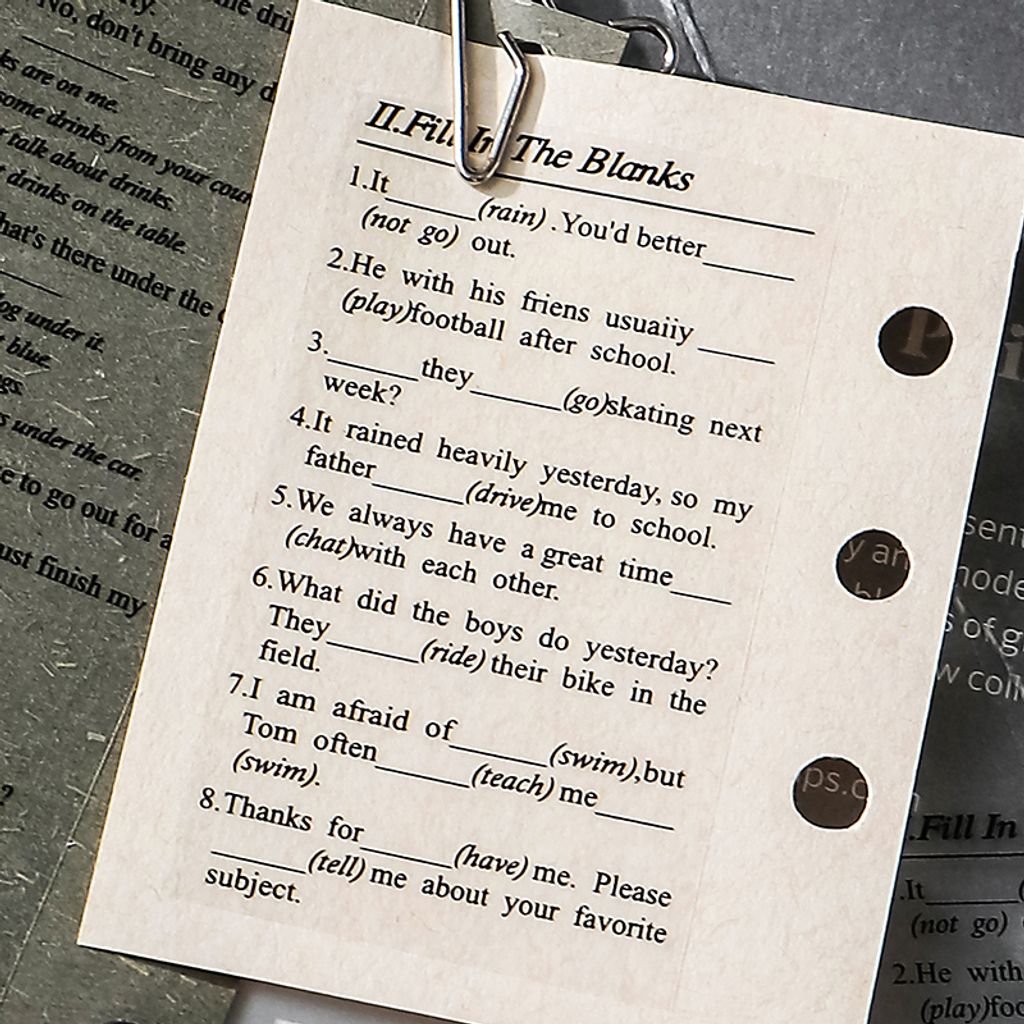 No, don't bring any d
ks are on me.
some drinks from your coun
r talk about drinks.
t drinks on the table.
hat's there under the
og under it.
t blue.
gs.
s under the car.
e to go out for a
ust finish my
?
II.Fill In The Blanks
1.It______(rain) .You'd better______
(not go) out.
2.He with his friens usuaiiy _____
(play)football after school.
3.______they______(go)skating next
week?
4.It rained heavily yesterday, so my
father______(drive)me to school.
5.We always have a great time____
(chat)with each other.
6.What did the boys do yesterday?
They______(ride) their bike in the
field.
7.I am afraid of______(swim),but
Tom often______(teach) me_____
(swim).
8.Thanks for______(have) me. Please
______(tell) me about your favorite
subject.
P
y an
ps.c
sent
node
s of g
w coll
.Fill In
.It______(
(not go)
2.He with
(play)foo